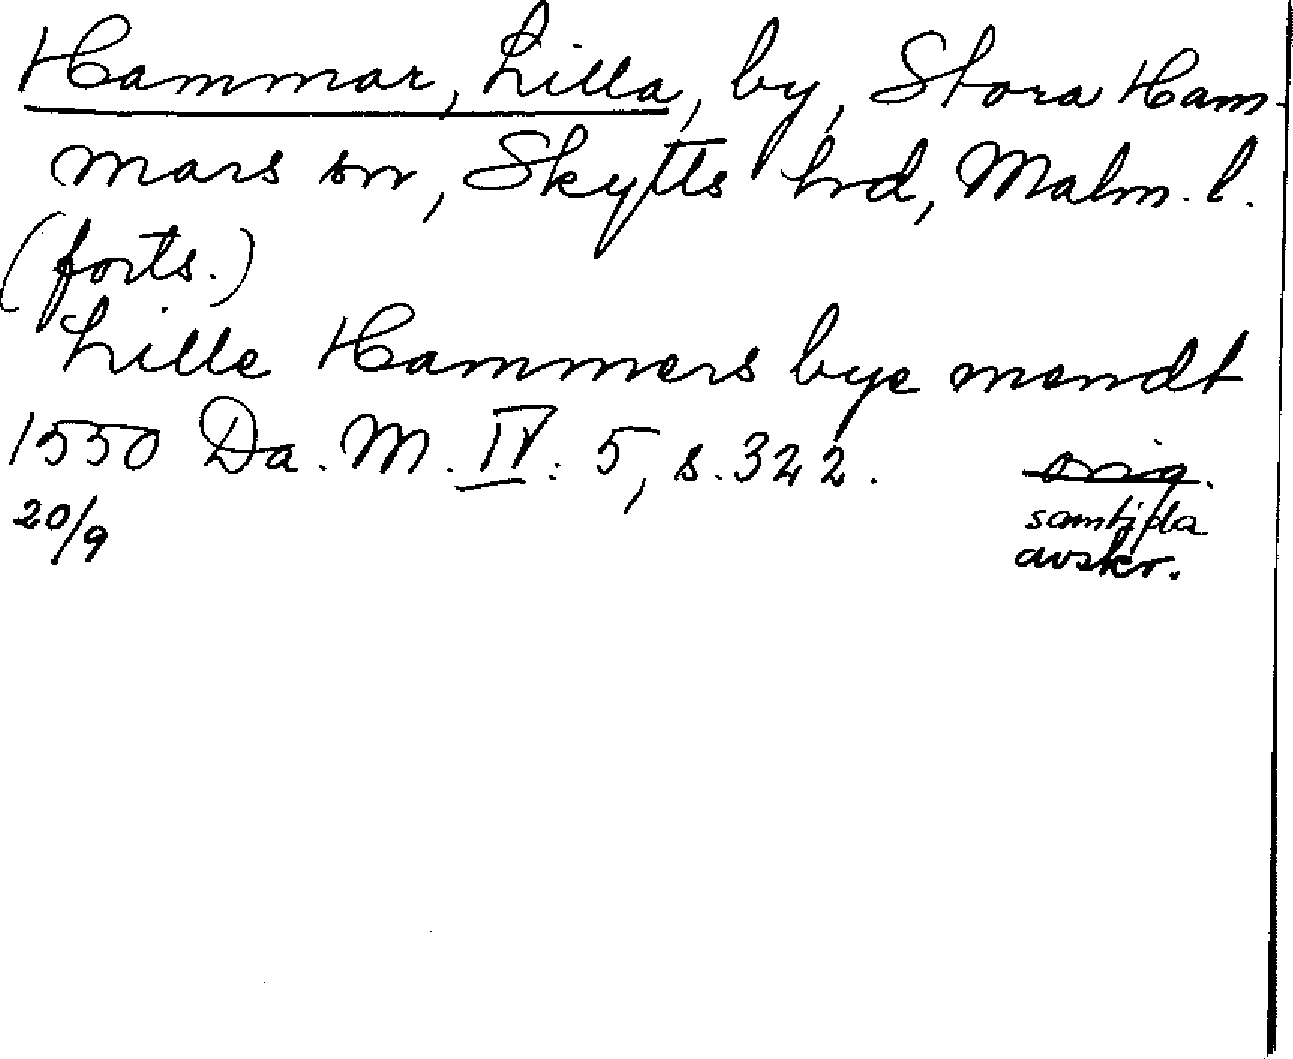 Hammar, Lilla, by, Stora Ham-
mars sn, Skytts hrd, Malm. l.
(forts.)
Lille Hammers bye mendt
1550 Da. M. IV: 5, s. 322. orig.
20/9 samtida
avskr.